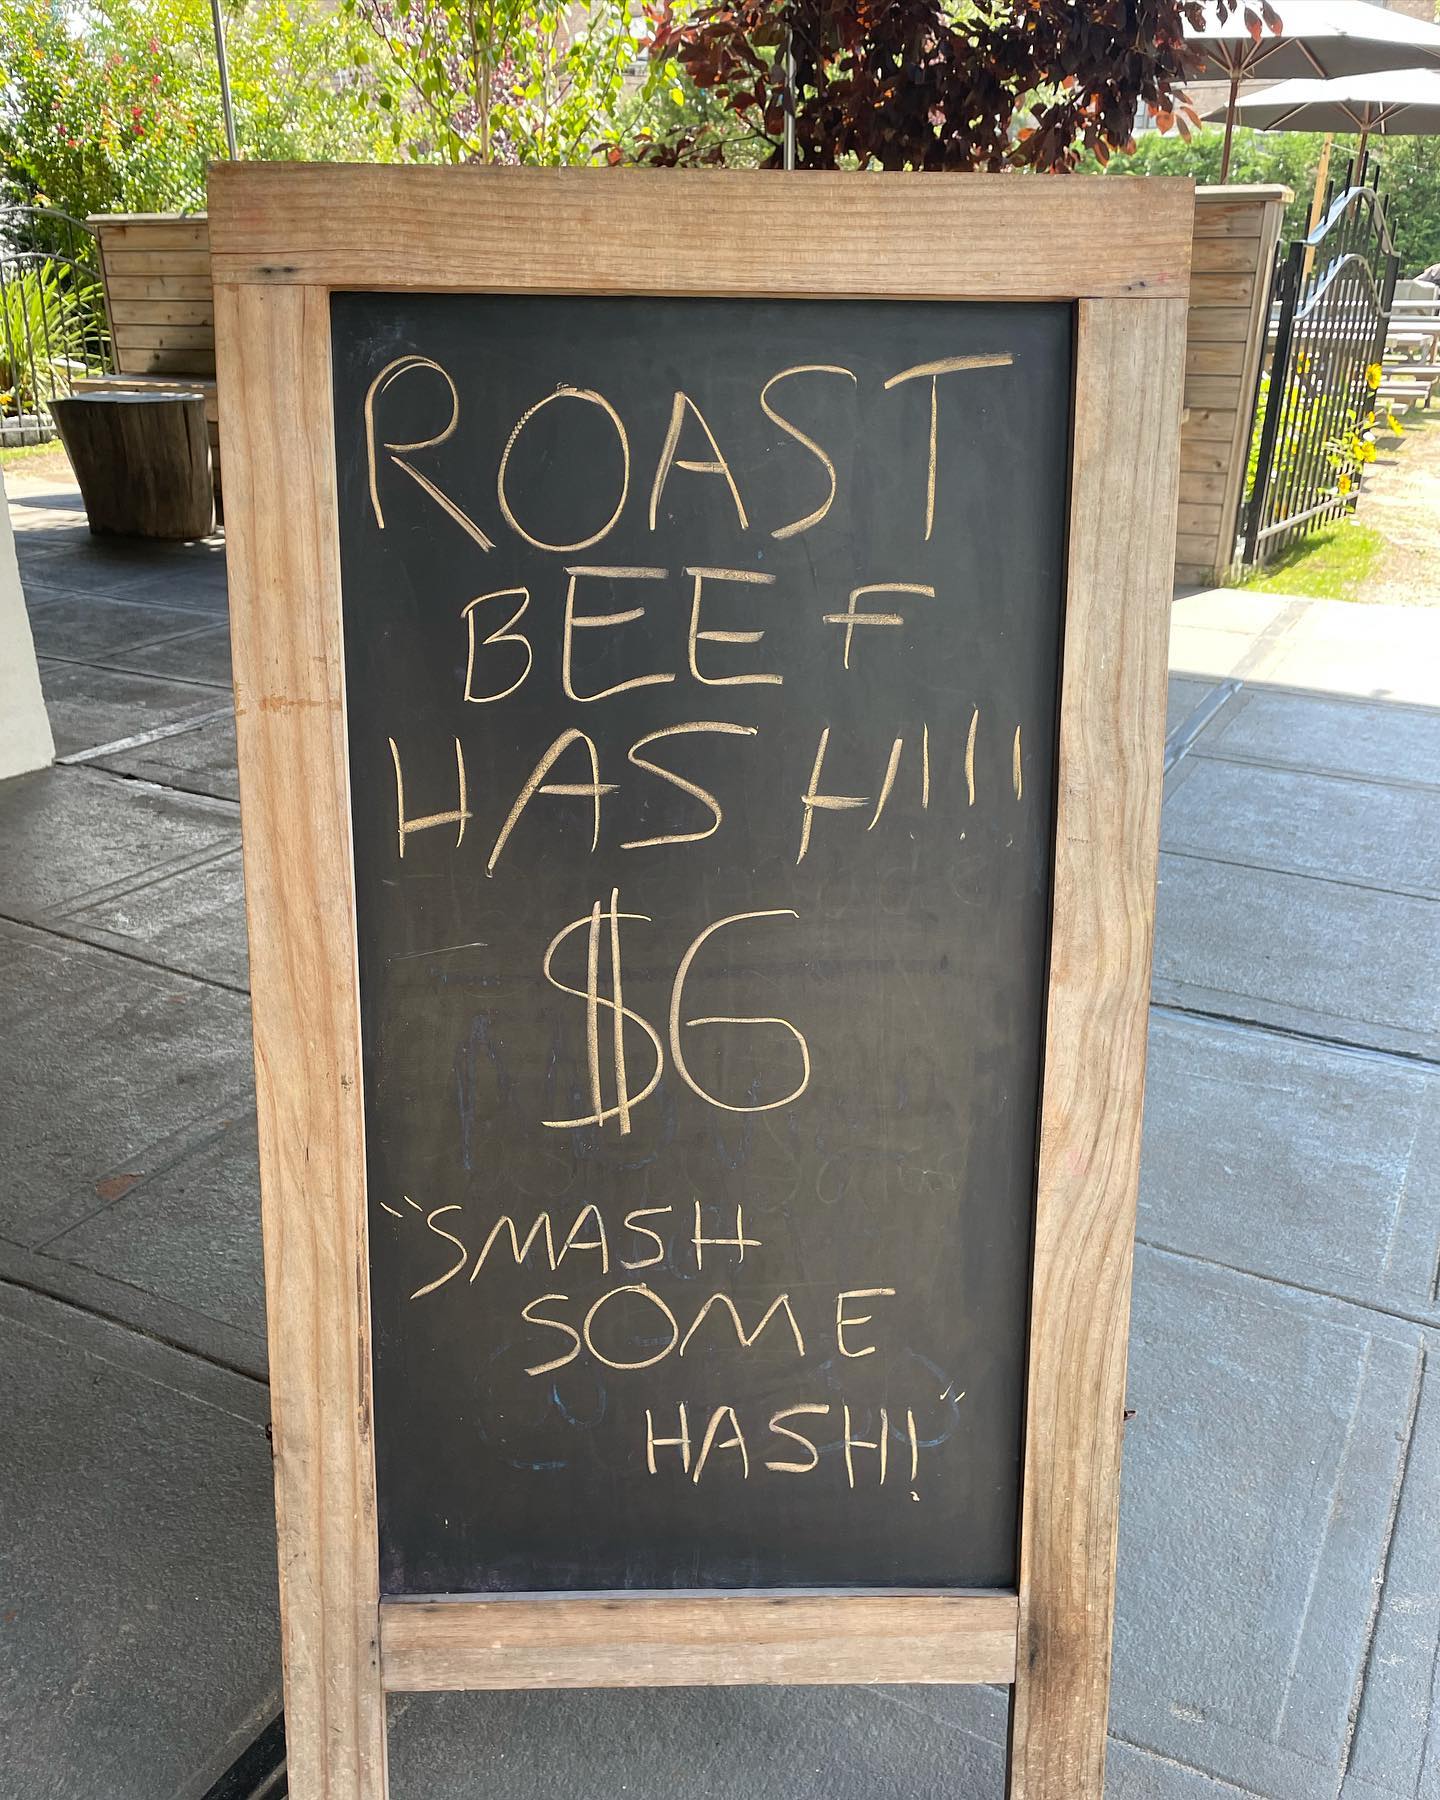 ROAST
BEEF
HASH!!!
$6
"SMASH
SOME
HASH!"